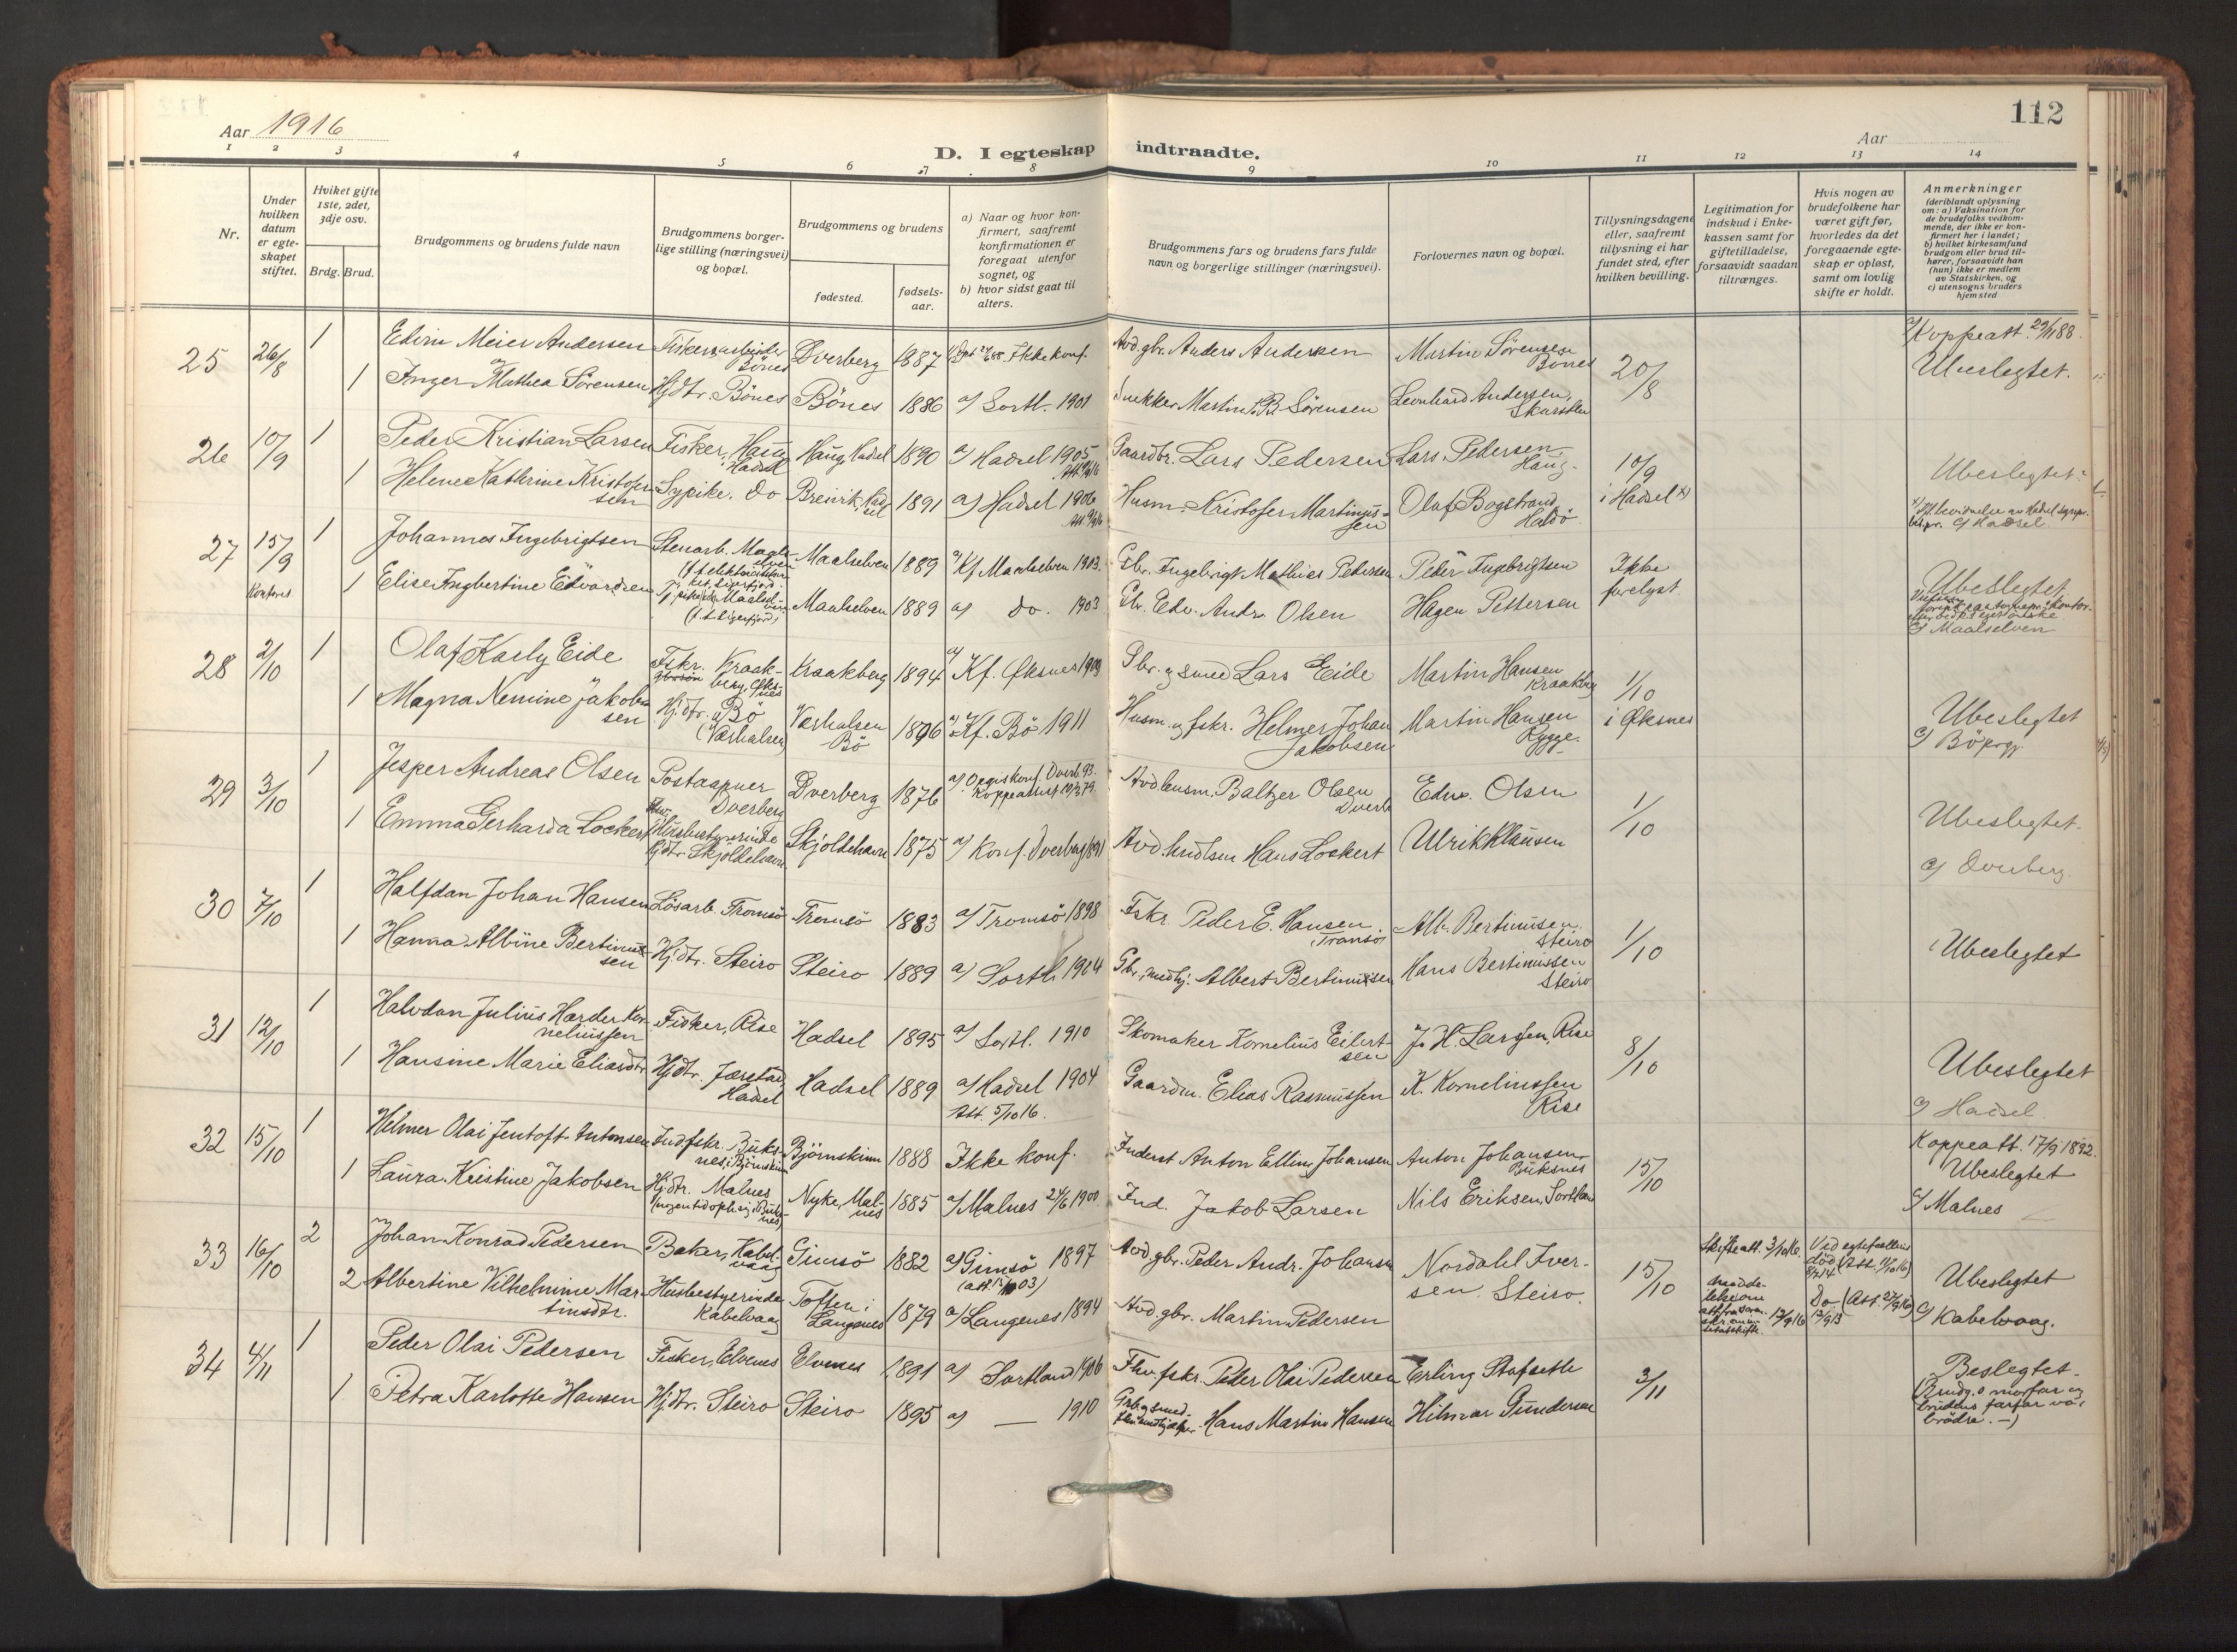 112
Aar 1916
Aar
D. I egteskap indtraadte.
1 2 3 4 5 6 7 8 9 10 11 12 13 14
Nr.
Under hvilken datum er egteskapet stiftet.
Hviket gifte 1ste, 2det, 3dje osv.
Brdg. Brud.
Brudgommens og brudens fulde navn
Brudgommens borgerlige stilling (næringsvei) og bopæl.
Brudgommens og brudens
fødested.
fødselsaar.
a) Naar og hvor konfirmert, saafremt konfirmationen er foregaat utenfor sognet, og
b) hvor sidst gaat til alters.
Brudgommens fars og brudens fars fulde navn og borgerlige stillinger (næringsvei).
Forlovernes navn og bopæl.
Tillysningsdagene eller, saafremt tillysning ei har fundet sted, efter hvilken bevilling.
Legitimation for indskud i Enkekassen samt for giftetilladelse, forsaavidt saadan tiltrænges.
Hvis nogen av brudefolkene har været gift før, hvorledes da det foregaaende egteskap er opløst, samt om lovlig skifte er holdt.
Anmerkninger (deriblandt oplysning om: a) Vaksination for de brudefolks vedkommende, der ikke er konfirmert her i landet; b) hvilket kirkesamfund brudgom eller brud tilhører, forsaavidt han (hun) ikke er medlem av Statskirken, og c) utensogns bruders hjemsted
25 26/8 1 Edvin Meier Andersen Fiskeriarbeider Bönes Dverberg 1887 Ikke konf. Avd. gbr. Anders Andersen Martin Sörensen Bönes 20/8 Koppeatt. 29/1 88.
1 Inger Mathea Sörensen Hjdtr. Bönes Bönes 1886 a) Sortl. 1901 Snekker Martin B. Sörensen Leonhard Andersen, Skarstein Ubeslegtet.
26 10/9 1 Peder Kristian Larsen Fisker, Haug Hadsel Haug, Hadsel 1890 a) Hadsel 1905 Gaardbr. Lars Pedersen Lars Pedersen Haug. 10/9 i Hadsel x) Ubeslegtet.
1 Helene Kathrine Kristofersen Sypike. do Breivik, Hadsel 1891 a) Hadsel 1906 Husm. Kristofer Martinussen Olaf Bogstrand Haldö c) Hadsel.
27 15/9 1 Johannes Ingebrigtsen Stenarb. Maalselven Maalselven 1889 a) Kf. Maalselven 1903. Gbr. Ingebrigt Mathias Pedersen Peder Ingebrigtsen Ikke forelyst Ubeslegtet
Kontoret 1 Elise Ingbertine Edvardsen Maalselven 1889 a) do. 1903 Gbr. Edv. Andr. Olsen Hagen Pettersen c) Maalselven
28 2/10 1 Olaf Karly Eide Fskr. Kraakberg, Øksnes Kraakberg 1894 a) Kf. Øksnes 1909 Gbr. og smed Lars Eide Martin Hansen Kraakberg 1/10 i Øksnes
1 Magna Nemine Jakobsen Hjdtr. Bö (Værhalsen) Værhalsen Bö 1896 a) Kf. Bö 1911 Husm. og fskr. Helmer Johan Jakobsen Martin Hansen Rygge. Ubeslegtet c) Bö prgj.
29 3/10 1 Jesper Andreas Olsen Postaapner Dverberg Dverberg 1876 Avd. husm. Baltzer Olsen Dverb Edv. Olsen 1/10 Ubeslegtet.
1 Emma Gerharda Lockert Husbestyrerinde Hjdtr. Skjoldehavn Skjoldehavn 1875 a) Konf. Dverberg 1891 Avd. hndlsm Hans Lockert Ulrik Klausen c) Dverberg.
30 7/10 1 Halfdan Johan Hansen Lösarb. Tromsö Tromsö 1883 a) Tromsö 1898 Fskr. Peder E. Hansen, Tromsö Alb. Bertinusen Steiro 1/10 Ubeslegtet
1 Hanna Albine Bertinussen Hjdtr. Steiro Steiro 1889 a) Sortl. 1904 Gbr., medhj. Albert Bertinussen Hans Bertinussen Steiro
31 12/10 1 Halvdan Julius Harder Korneliussen Fisker, Rise Hadsel 1895 a) Sortl. 1910 Skomaker Kornelius Eilertsen J. H. Larssen, Rise 8/10 Ubeslegtet
1 Hansine Marie Eliasdtr. Hjdtr. Jørstad Hadsel Hadsel 1889 a) Hadsel 1904 Att. 5/10 16. Gaardm. Elias Rasmussen K. Korneliussen Rise c) Hadsel.
32 15/10 1 Helmer Olai Jentoft Antonsen Indfskr. Buksnes i Björnskinn Björnskinn 1888 Ikke konf. Inderst Anton Elling Johansen Anton Johansen, Buksnes 15/10 Koppeatt. 17/9 1892.
1 Laura Kristine Jakobsen Hjdtr. Malnes Nyke, Malnes 1885 a) Malnes 24/6 1900 Ind. Jakob Larsen Nils Eriksen, Sortland Ubeslegtet c) Malnes
33 16/10 2 Johan Konrad Pedersen Baker, Kabelvaag Gimsö 1882 a) Gimsö 1897 Avd. gbr. Peder Andr. Johansen Nordahl Iversen. Steiro. 15/10 Skifteatt. 3/10 16. Ved egtefællens död Ubeslegtet
2 Albertine Vilhelmine Martinsdtr. Husbestyerinde Kabelvaag Toften i Langenes 1879 a) Langenes 1894 Avd. gbr. Martin Pedersen Do (Att. 27/9 16) c) Kabelvaag.
34 4/11 1 Peder Olai Pedersen Fisker, Elvenes Elvenes 1891 a) Sortland 1906 Fhv. fskr. Peder Olai Pedersen Erling Stafseth 3/11 Beslegtet.
1 Petra Karlotte Hansen Hjdtr. Steiro Steiro 1895 a) — 1910 Hans Martin Hansen Hilmar Gundersen (Brudg.s morfar og brudens farfar var brödre. —)